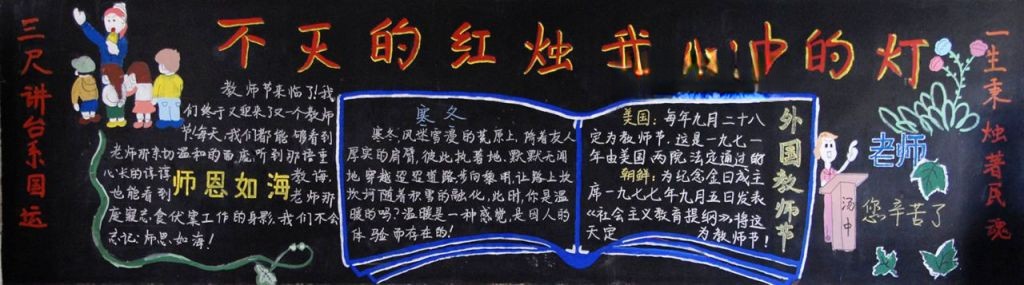 不灭的红烛我心中的灯
三尺讲台系国运
教师节来临了!我
们终于又迎来了又一个教师
节!每天,我们都能够看到
老师那亲切温和的面庞,听到那语重
心长的谆谆教诲,
师恩如海
也能看到老师那
废寝忘食伏案工作的身影,我们不会
忘记:师恩如海!
寒冬
寒冬风迷窅漫的荒原上,倚着友人
厚实的肩臂,彼此执着地,默默无闻
地穿越迢迢道路旁的黎明,让路上坎
坎坷随着积雪的融化,此时,你是温
暖的吗?温暖是一种感觉,是因人的
体验而存在的!
外国教师节
美国:每年九月二十八
定为教师节.这是一九七一
年由美国两院法定通过的
朝鲜:为纪念金日成主
席一九七七年九月五日发表
《社会主义教育提纲》,将这
天定为教师节!
老师
您辛苦了
汤中
一生秉烛著民魂